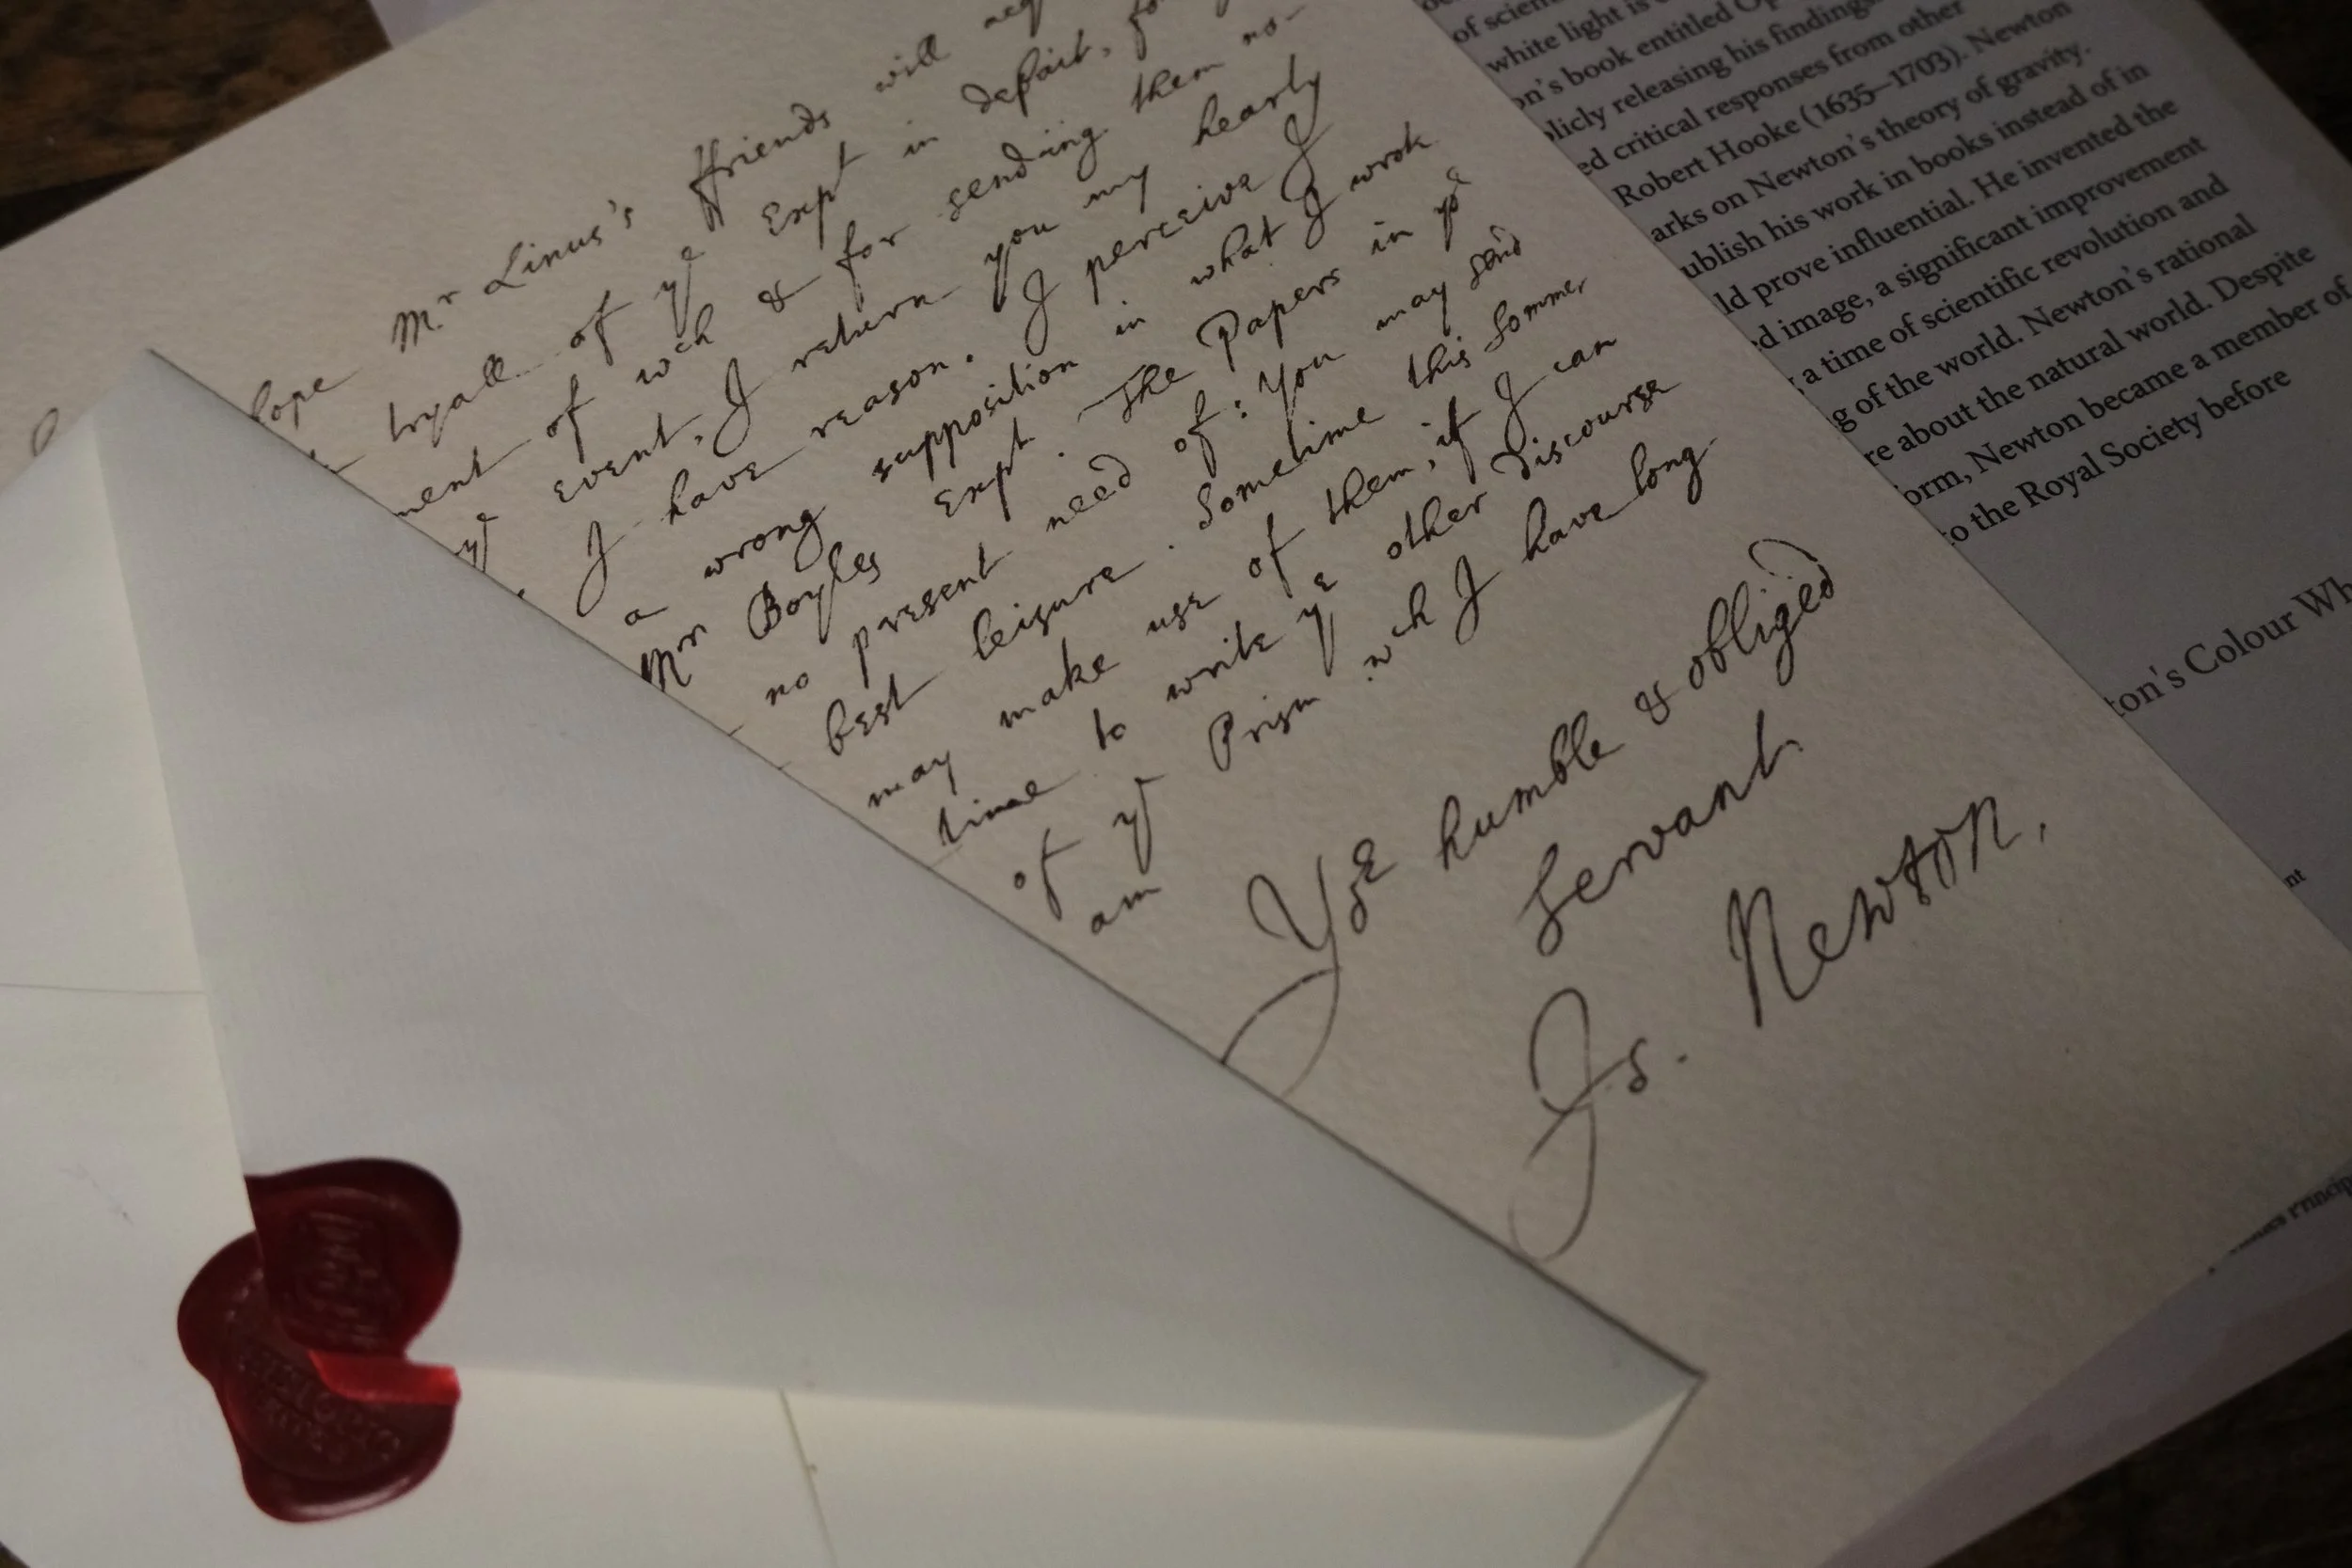 will
Mr Linus's ffriends
hope
tryall of ye Expt in
of wch & for sending them no-
ye event, I return you my hearly
I have reason. I perceive I
a wrong supposition in what I wrote
Mr Boyles Expt. The Papers in yor
no present need of: You may send
best leisure. Sometime this Sommer
may make use of them, if I can
time to write ye other discourse
of ye Prism wch I have long
am
Yor humble & obliged
Servant.
Is. Newton.
of
white light is
on's book entitled
licly releasing his findings
ed critical responses from other
Robert Hooke (1635–1703). Newton
arks on Newton's theory of gravity.
ublish his work in books instead of in
ld prove influential. He invented the
d image, a significant improvement
a time of scientific revolution and
g of the world. Newton's rational
re about the natural world. Despite
orm, Newton became a member of
o the Royal Society before
ton's Colour Wh
nt